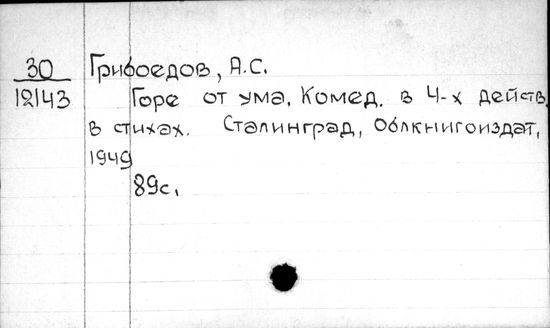 30 Грибоедов, А.С.
12143 Горе от ума. Комед. в 4-х действ.
в стихах. Сталинград, Облкнигоиздат,
1949
89с.